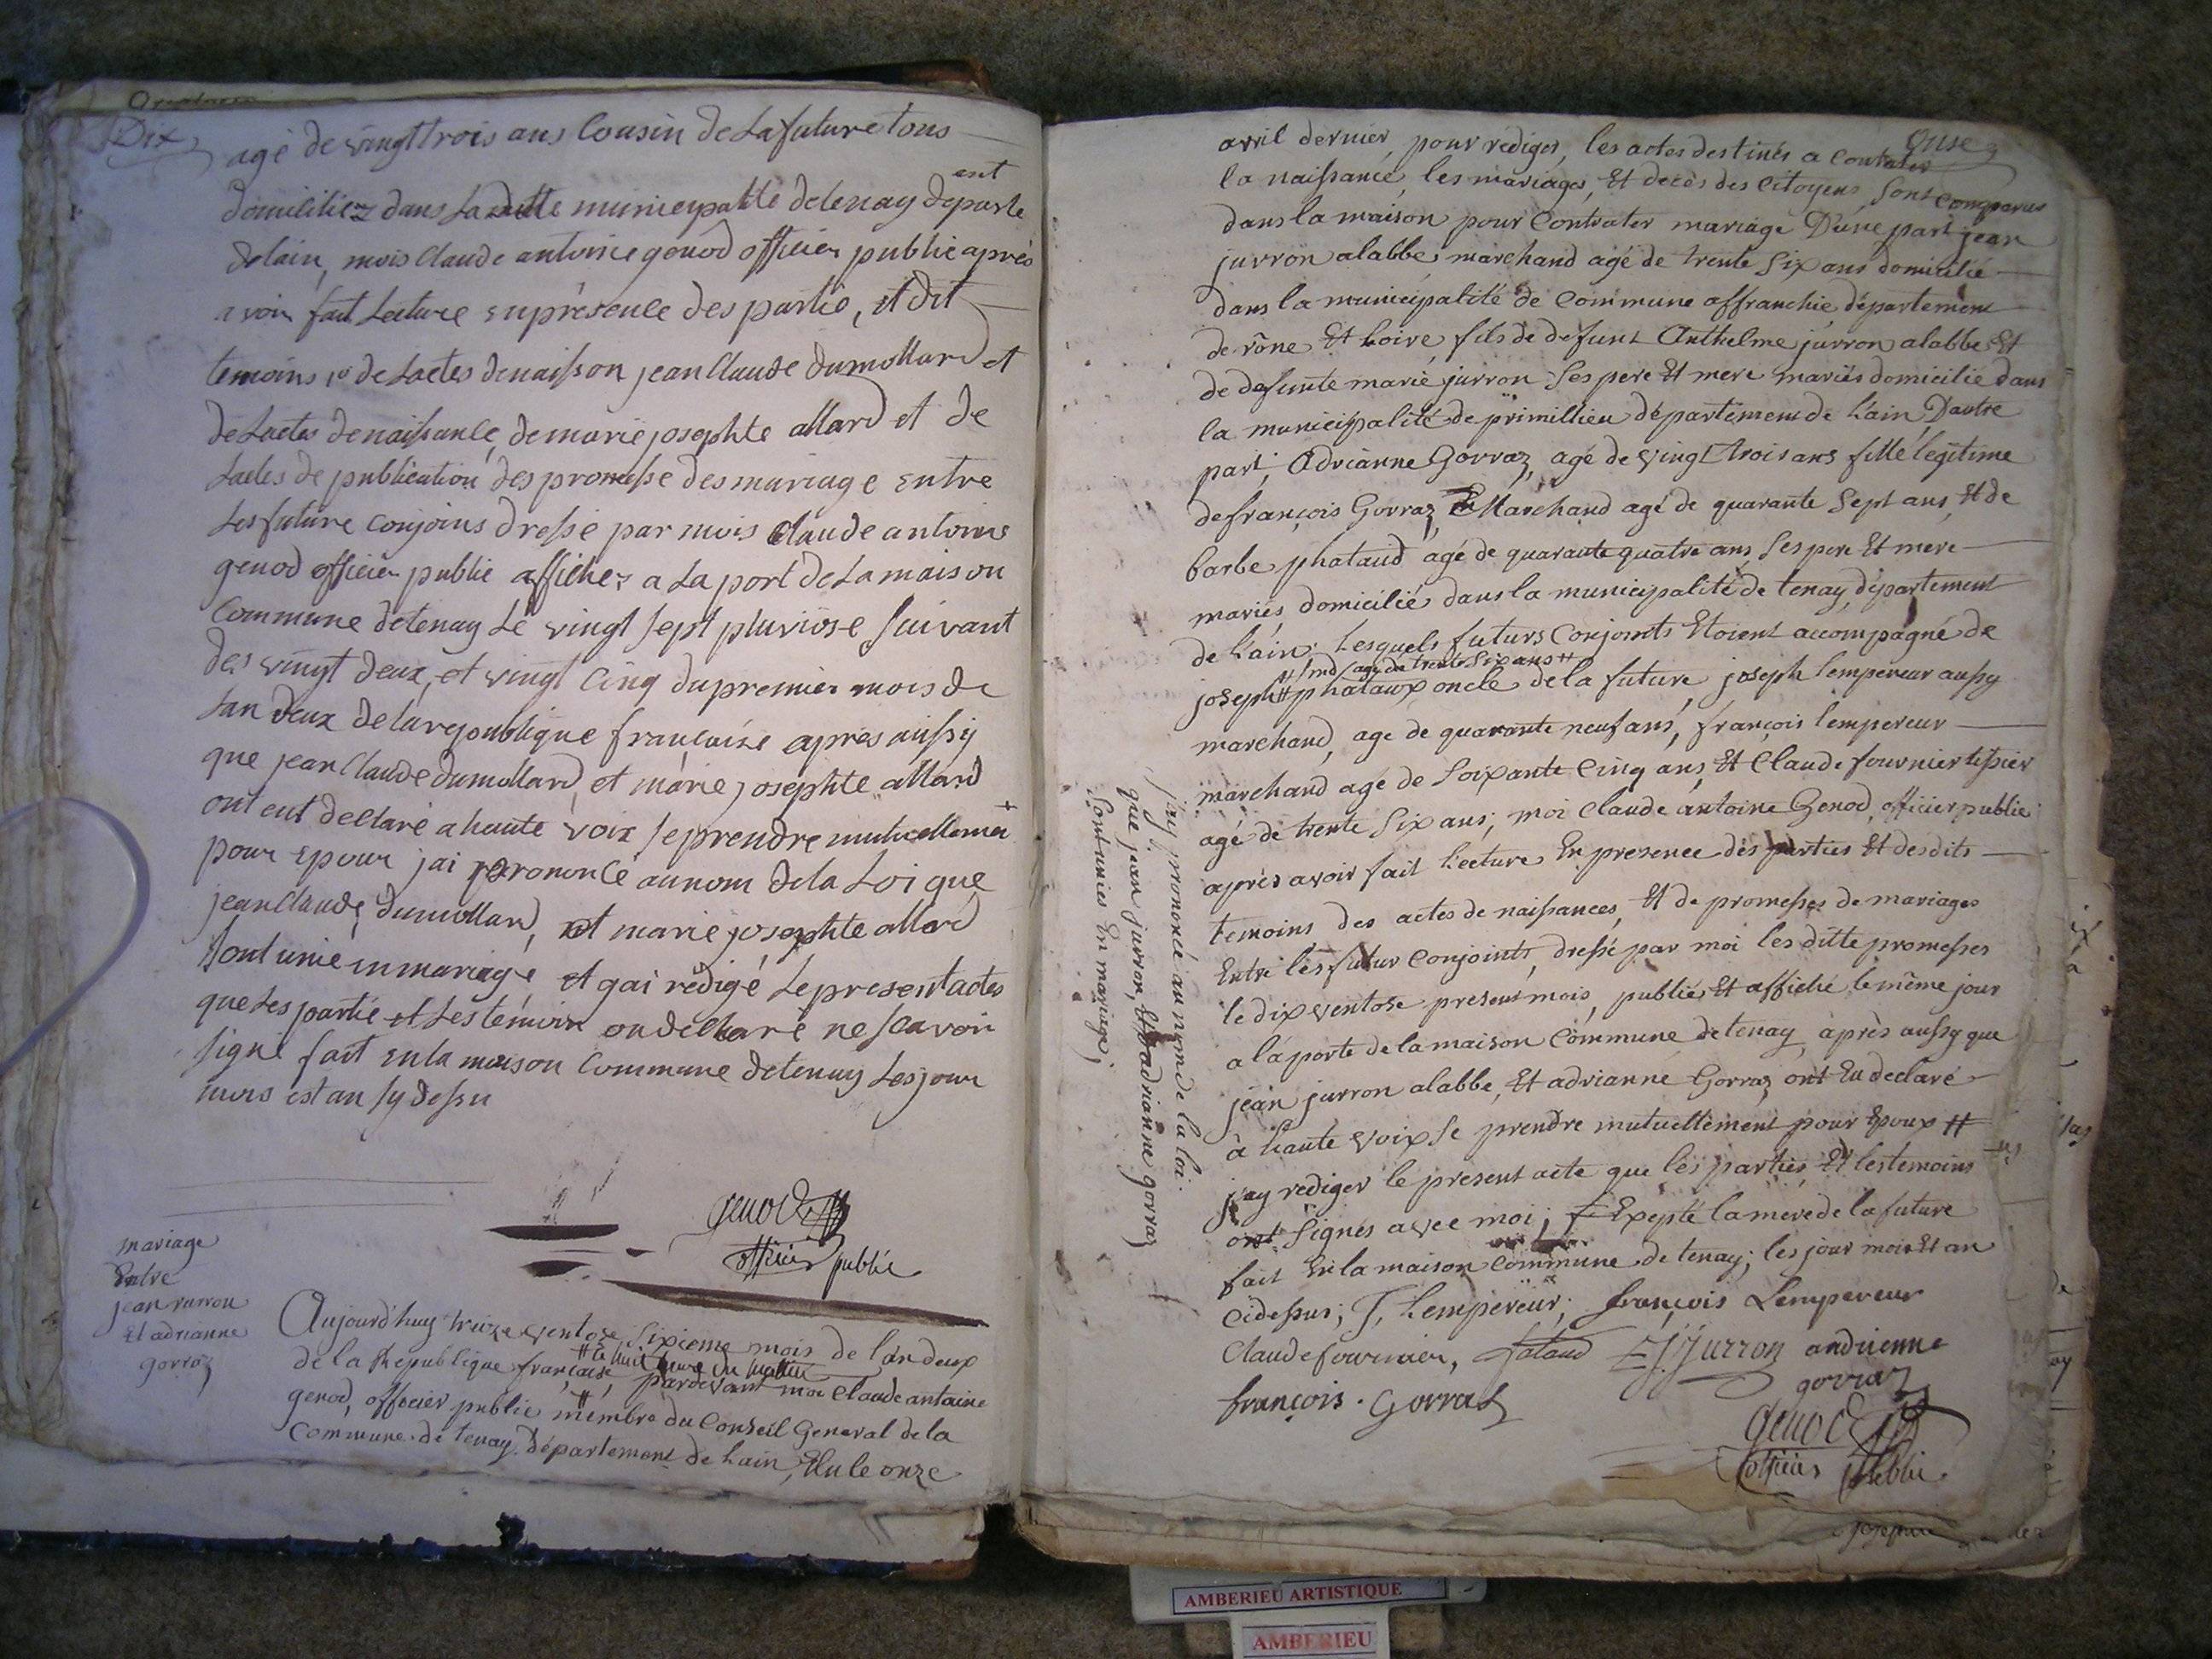 Dix
agé de vingt trois ans Cousin de La future tous
domiciliez dans La ditte municipalité de tenay departe
ent
de lain, mois Claude antoine genod officier public après
avoir fait Lecture en présence des partie, et dit
temoins 1° de Lactes de naisson jean Claude dumollard et
de Lactes denaissance, de marie josephte allard et de
Lactes de publication des promesse des mariage entre
Les future conjoins dressé par mois Claude antoine
genod officier public affichez a La port de La maison
Commune de tenay Le vingt sept pluviose suivant
des vingt deux, et vingt Cinq du premier mois de
Lan deux de la republique française après aussy
que jean Claude dumollard, et marie josephte allard
ont eut declaré a haute voix se prendre mutuellement
pour epour jai prononcé au nom de la Loi que
jean Claude dumollard, et marie josephte allard
sont unie en mariage et gai rédigé Le present actes
que Les partie et Les témoin on declaré ne scavoir
signé fait en la maison Commune de tenay Les jour
mois est an sy dessu
genod
officier public
mariage
Entre
jean jurron
et adrianne
gorraz
Aujourd'huy treize ventose, sixieme mois de l'an deux
# à huit heure du matin
de la Republique française #, pardevant moi Claude antoine
genod, officier public membre du Conseil General de la
Commune de tenay département de Lain, Elu le onze
Onse
avril dernier, pour rédiger, les actes destinés a Contater
la naissance, les mariages, Et decès des Citoyens, sont comparus
dans la maison pour Contrater mariage D'une part jean
jurron alabbe, marchand agé de trente six ans domicilié
dans la municipalité de Commune affranchie département
de rône Et Loire, fils de defunt Anthelme jurron alabbe, Et
de defunte marie jurron ses pere Et mere mariés domicilié dans
la municipalité de primillieu département de L'ain D'autre
part, Adrianne Gorraz, agé de vingt trois ans fille légitime
de françois Gorraz, Marchand agé de quarante sept ans, Et de
barbe phataud agé de quarante quatre ans, ses pere Et mere
mariés, domicilié dans la municipalité de tenay, département
de L'ain Lesquels futurs Conjoints Etoient accompagné de
# md agé de trente six ans #
joseph # phataux oncle de la future, joseph lempereur aussy
marchand, agé de quarante neuf ans, françois lempereur
marchand agé de soixante Cinq ans, Et Claude fournier tissier
agé de trente six ans, moi Claude antoine Genod, officier public
après avoir fait Lecture En presence des parties Et desdits
temoins des actes de naissances, Et de promesses de mariages
Entre les futur Conjoints, dressé par moi les ditte promesses
le dix ventose present mois, publiés Et affiché le même jour
a la porte de la maison Commune de tenay, après aussy que
jean jurron alabbe, Et adrianne Gorraz ont Eu declaré
à haute voix se prendre mutuellement pour Epoux #
j'ay rediger le present acte que les parties Et les temoins
ont signés avec moi; Exepté la mere de la future
fait En la maison Commune de tenay, les jour mois Et an
cidessus; J, Lempereur; françois Lempereur
Claude fournier, fataud J Jurron andrienne
gorraz
françois . Gorras
genod
officier public
j'ay prononcé au nom de la loi
que jean jurron, Et adrianne gorraz
sont unies En mariage;
AMBERIEU ARTISTIQUE
AMBERIEU